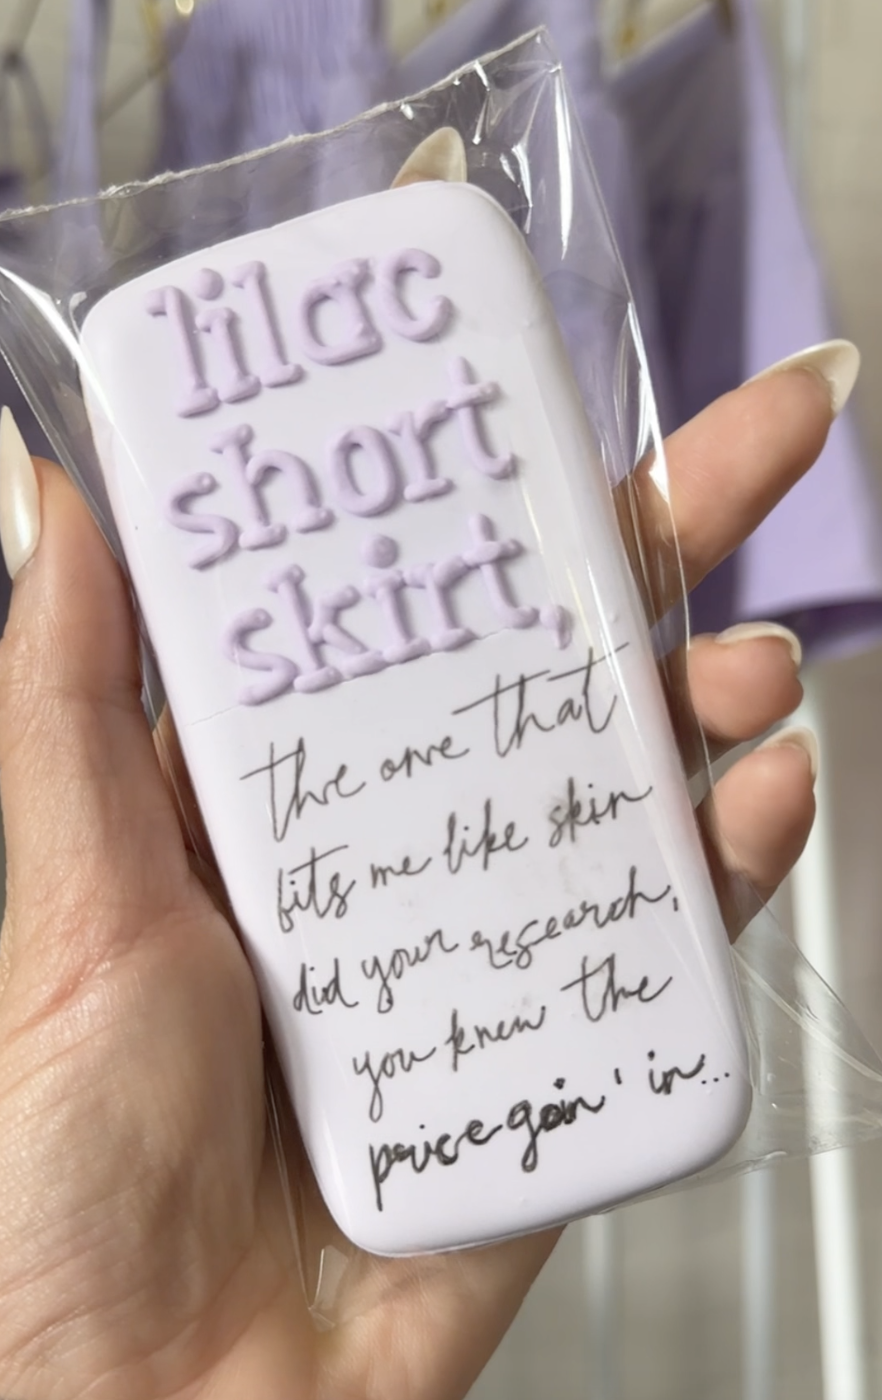 lilac
short
skirt,
the one that
fits me like skin
did your research,
you knew the
price goin' in...